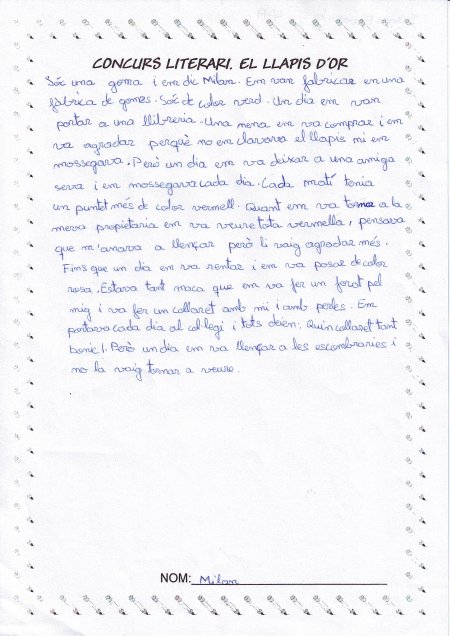 CONCURS LITERARI. EL LLAPIS D'OR
Sóc una goma i em dic Milan. Em van fabricar en una
fàbrica de gomes. Sóc de color verd. Un dia em van
portar a una llibreria. Una nena em va comprar i em
va agradar perquè no em clavava el llapis ni em
mossegava. Però un dia em va deixar a una amiga
seva i em mossegava cada dia. Cada matí tenia
un puntet més de color vermell. Quant em va tornar a la
meva propietaria em va veure tota vermella, pensava
que m'anava a llençar però li vaig agradar més.
Fins que un dia em va rentar i em va posar de color
rosa. Estava tant maca que em va fer un forat pel
mig i va fer un collaret amb mi i amb perles. Em
portava cada dia al col·legi i tots deien: Quin collaret tant
bonic!. Però un dia em va llençar a les escombraries i
no la vaig tornar a veure.
NOM: Milan